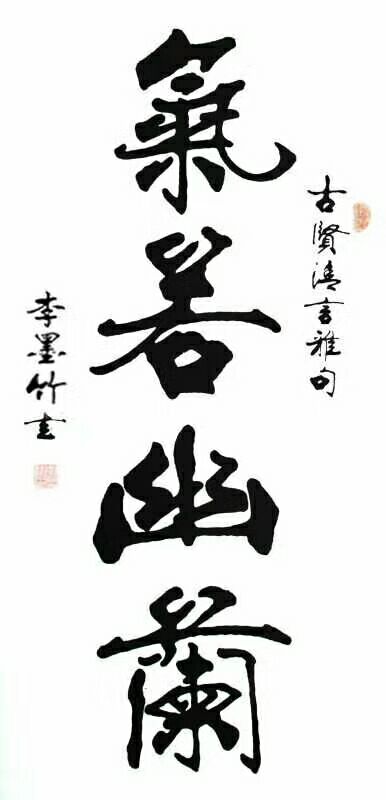 古賢清言雅句
氣若幽蘭
李墨竹書